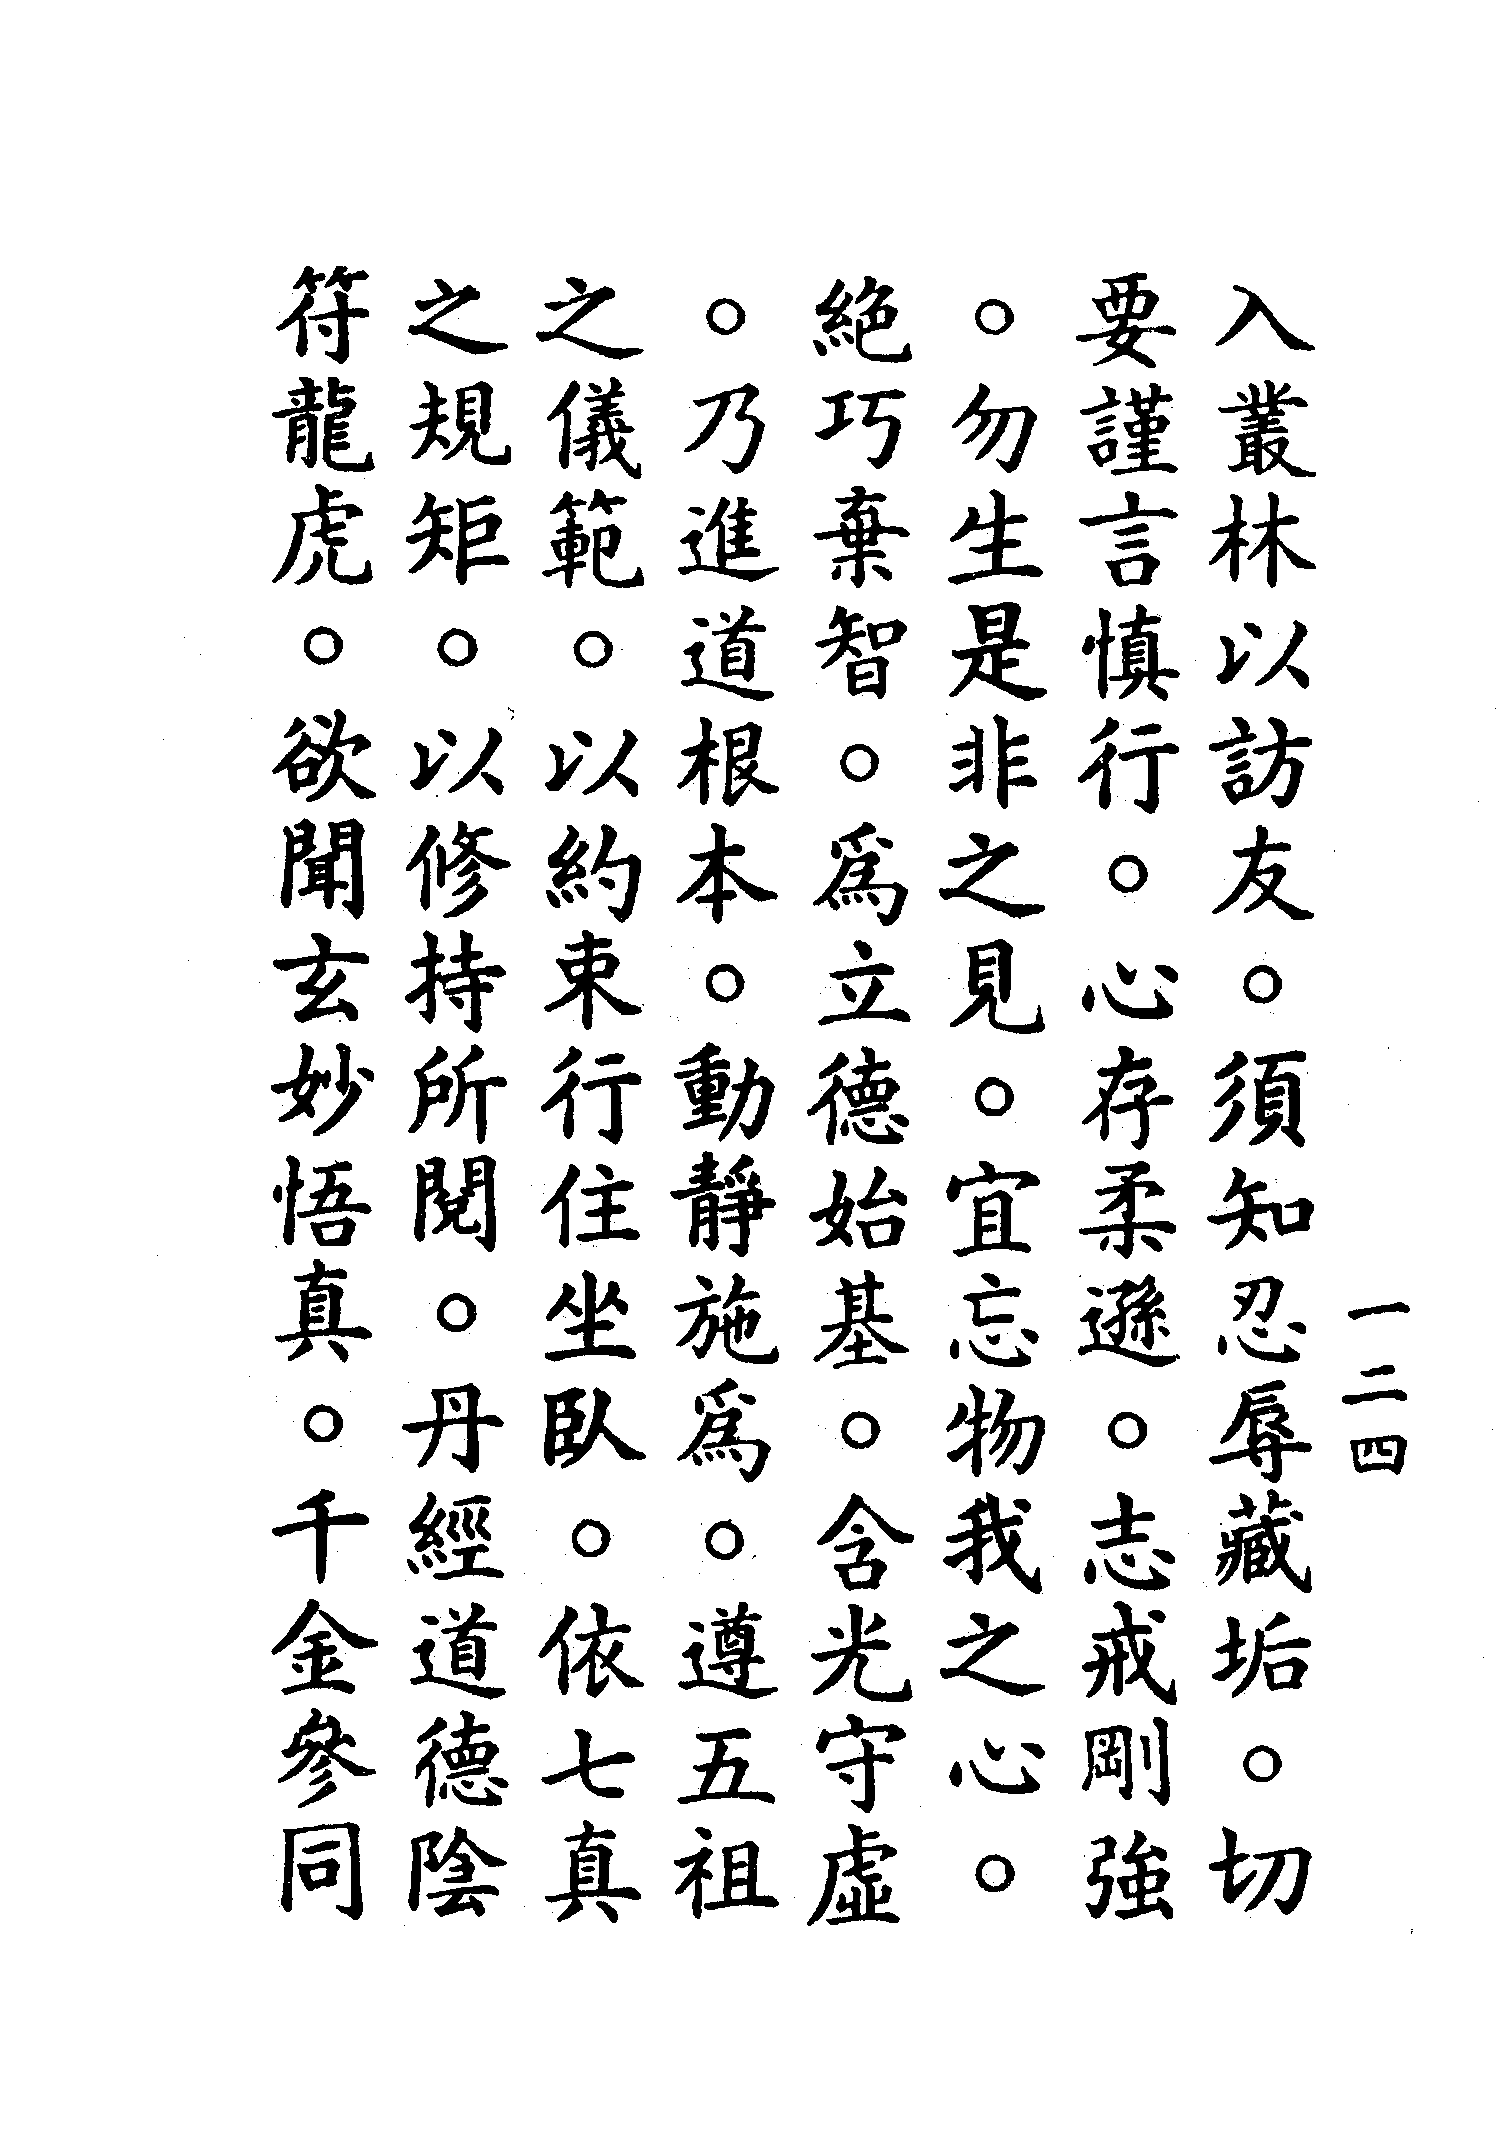 一二四
入叢林以訪友。須知忍辱藏垢。切
要謹言慎行。心存柔遜。志戒剛強
。勿生是非之見。宜忘物我之心。
絕巧棄智。為立德始基。含光守虛
。乃進道根本。動靜施為。遵五祖
之儀範。以約束行住坐臥。依七真
之規矩。以修持所閱。丹經道德陰
符龍虎。欲聞玄妙悟真。千金參同